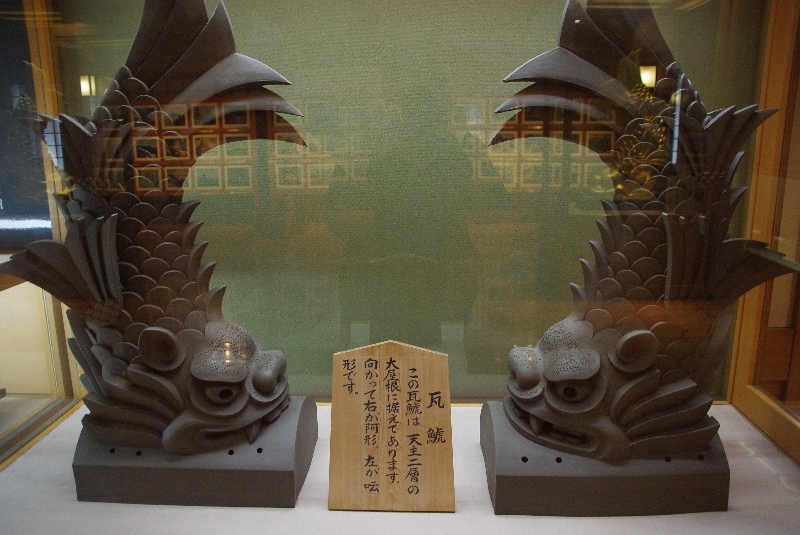 瓦鯱
この瓦鯱は 天主二層の
大屋根に据えてあります。
向かって右が阿形 左が吽
形です。